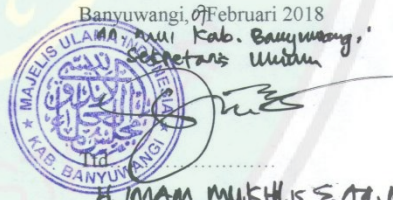 Banyuwangi, 07 Februari 2018
An. MUI Kab. Banyuwangi,
Sekretaris Umum
MAJELIS ULAMA INDONESIA
KAB. BANYUWANGI
Ttd
H. IMAM MUKHLIS S.Ag, M